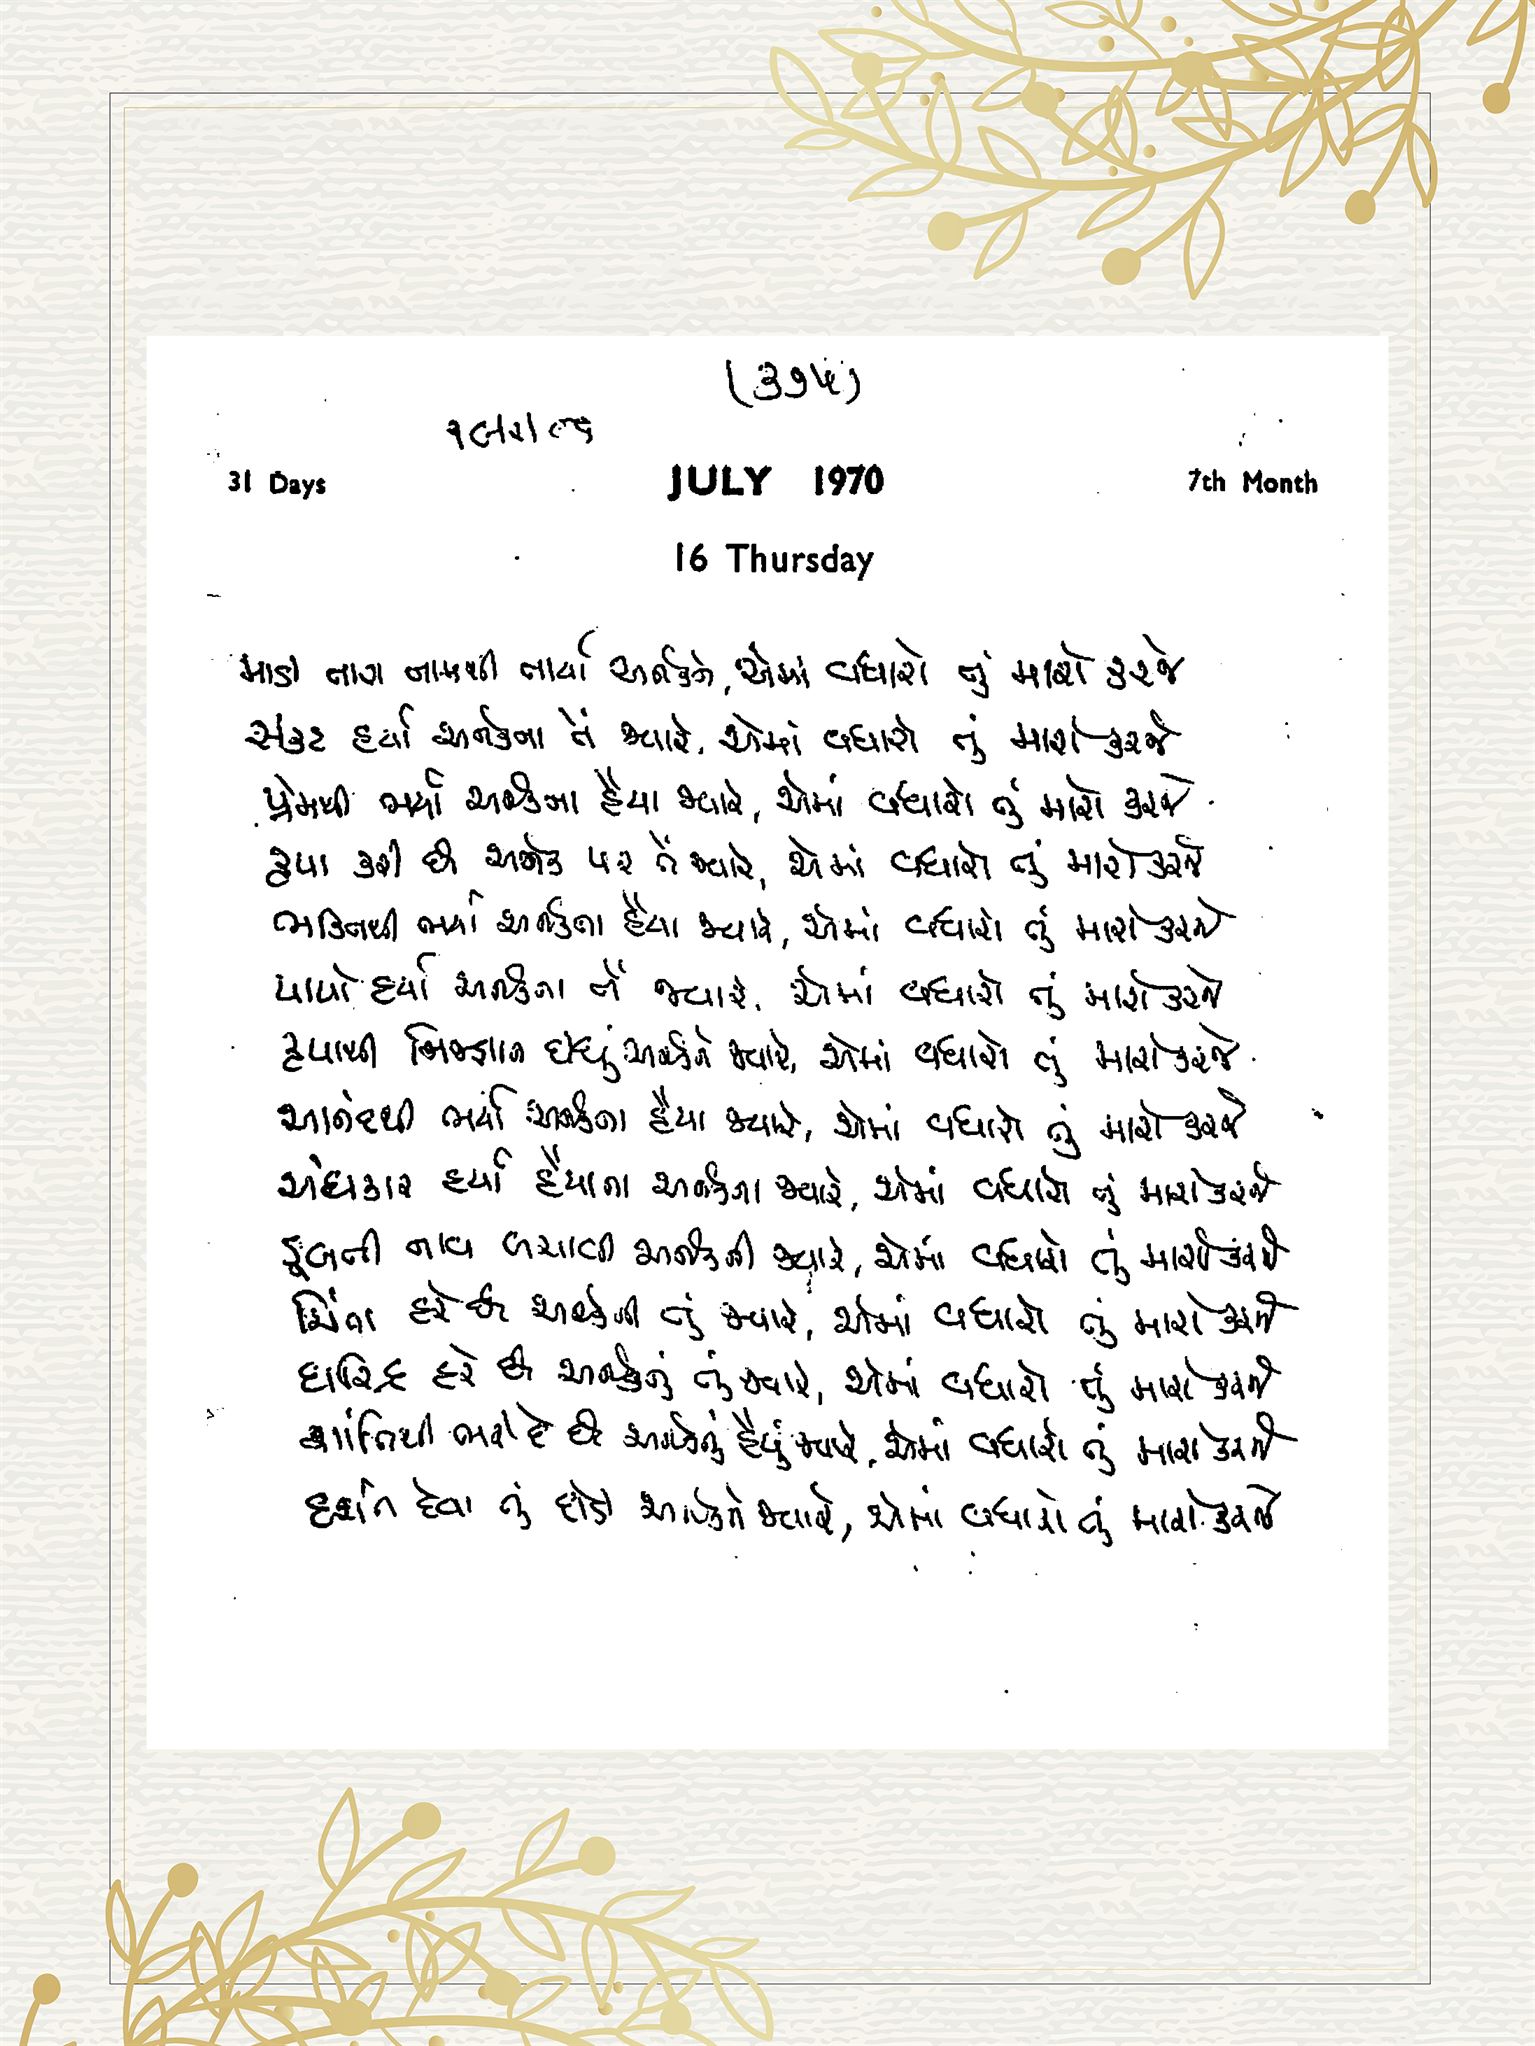 (૩૭૫)
31 Days JULY 1970 7th Month
16 Thursday
માડી તારા નામથી તાર્યા અનેકને, એમાં વધારો તું મારો કરજે
સંકટ હર્યા અનેકના તેં જ્યારે, એમાં વધારો તું મારો કરજે
પ્રેમથી ભર્યા અનેકના હૈયા જ્યારે, એમાં વધારો તું મારો કરજે
કૃપા કરી છે અનેક પર તેં જ્યારે, એમાં વધારો તું મારો કરજે
ભક્તિથી ભર્યા અનેકના હૈયા જ્યારે, એમાં વધારો તું મારો કરજે
પાપો હર્યા અનેકના તેં જ્યારે, એમાં વધારો તું મારો કરજે
કૃપાથી નિજજ્ઞાન દીધું અનેકને જ્યારે, એમાં વધારો તું મારો કરજે
આનંદથી ભર્યા અનેકના હૈયા જ્યારે, એમાં વધારો તું મારો કરજે
અંધકાર હર્યા હૈયાના અનેકના જ્યારે, એમાં વધારો તું મારો કરજે
ડૂબતી નાવ બચાવી અનેકની જ્યારે, એમાં વધારો તું મારો કરજે
ચિંતા હરે છે અનેકની તું જ્યારે, એમાં વધારો તું મારો કરજે
દારિદ્ર હરે છે અનેકનું તું જ્યારે, એમાં વધારો તું મારો કરજે
શાંતિથી ભરી દે છે અનેકનું હૈયું જ્યારે, એમાં વધારો તું મારો કરજે
દર્શન દેવા તું દોડી અનેકને જ્યારે, એમાં વધારો તું મારો કરજે